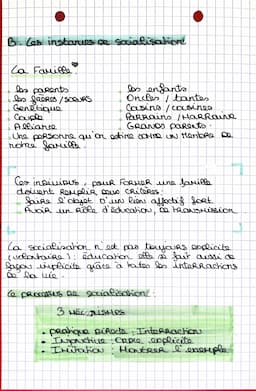 B. Les instances de socialisation
La Famille
. les parents
. les frères/soeurs
. Génétique
. Couple
. Alliance
. Une personne qu'on estime comme un membre de
notre famille.
. les enfants
. Oncles / tantes
. Cousins / cousines
. Parrains / Marraine
. Grands parents.
Ces individus, pour former une famille
doivent remplir deux critères:
- Faire l'objet d'un lien affectif fort
- Avoir un rôle d'éducation, de transmission
La socialisation n'est pas toujours explicite
(volontaire): éducation elle se fait aussi de
façon implicite grâce à toutes les interractions
de la vie.
Le processus de socialisation:
3 MÉCANISMES
• pratique directe: Interraction
• Injonctive: Ordre explicite
• Imitation: Montrer l'exemple